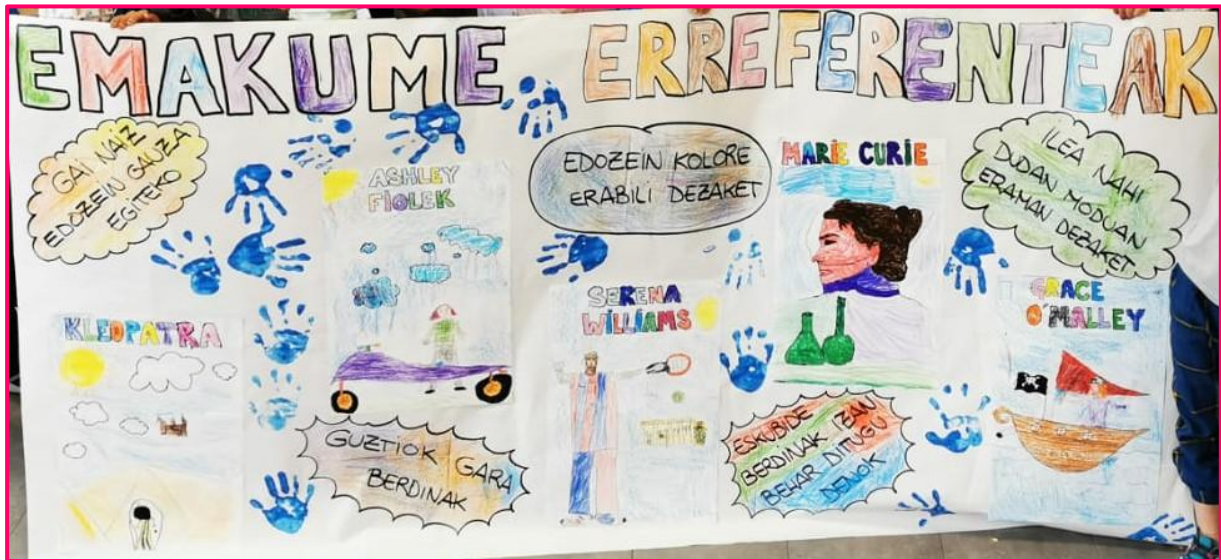 EMAKUME ERREFERENTEAK
GAI NAIZ
EDOZEIN GAUZA
EGITEKO
ASHLEY
FIOLEK
EDOZEIN KOLORE
ERABILI DEZAKET
MARIE CURIE
ILEA NAHI
DUDAN MODUAN
ERAMAN DEZAKET
KLEOPATRA
SERENA
WILLIAMS
GRACE
O'MALLEY
GUZTIOK GARA
BERDINAK
ESKUBIDE
BERDINAK IZAN
BEHAR DITUGU
DENOK